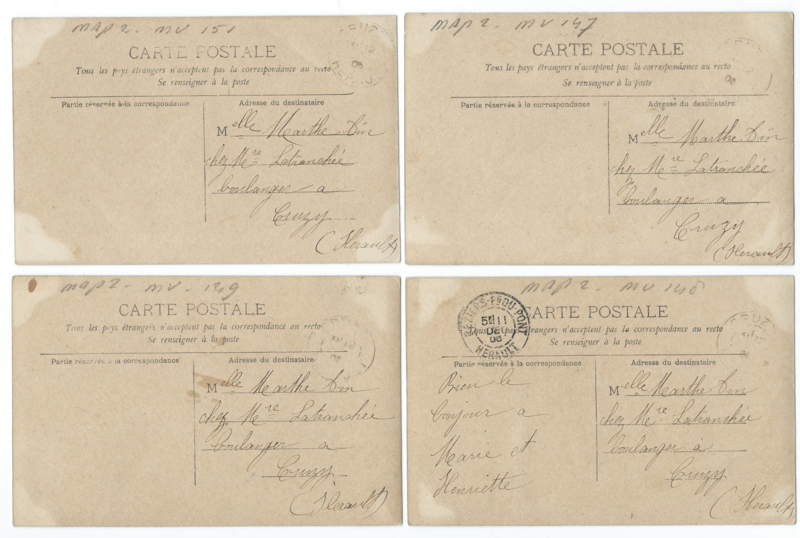 MAP 2 - MV 151
CARTE POSTALE
Tous les pays étrangers n'acceptent pas la correspondance au recto
Se renseigner à la poste
Partie réservée à la correspondance
Adresse du destinataire
Melle Marthe
chez Mre Latranchée
boulanger a
Cruzy
(Herault)
MAP 2 - MV 147
CARTE POSTALE
Tous les pays étrangers n'acceptent pas la correspondance au recto
Se renseigner à la poste
Partie réservée à la correspondance
Adresse du destinataire
Melle Marthe
chez Mre Latranchée
boulanger a
Cruzy
(Herault)
MAP 2 - MV - 149
CARTE POSTALE
Tous les pays étrangers n'acceptent pas la correspondance au recto
Se renseigner à la poste
Partie réservée à la correspondance
Adresse du destinataire
Melle Marthe
chez Mre Latranchée
boulanger a
Cruzy
(Herault)
MAP 2 - MV 148
BEZIERS-Fg DU PONT
HERAULT
CARTE POSTALE
Tous les pays étrangers n'acceptent pas la correspondance au recto
Se renseigner à la poste
Partie réservée à la correspondance
Bien le
bonjour a
Marie et
Henriette
Adresse du destinataire
Melle Marthe
chez Mre Latranchée
boulanger à
Cruzy
(Herault)